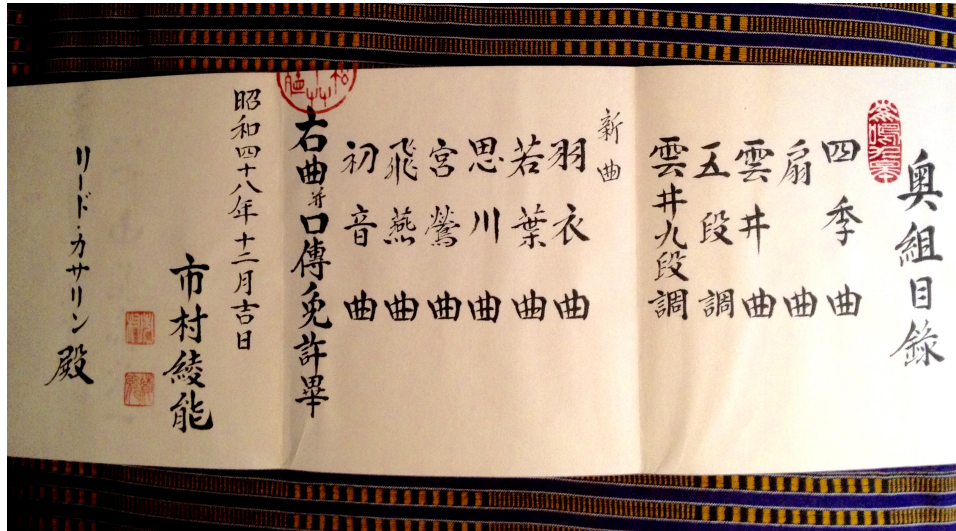 奥組目錄
四季曲
扇曲
雲井曲
五段調
雲井九段調
新曲
羽衣曲
若葉曲
思川曲
宮鶯曲
飛燕曲
初音曲
右曲并口傳免許畢
昭和四十八年十二月吉日
市村綾能
リード・カサリン殿